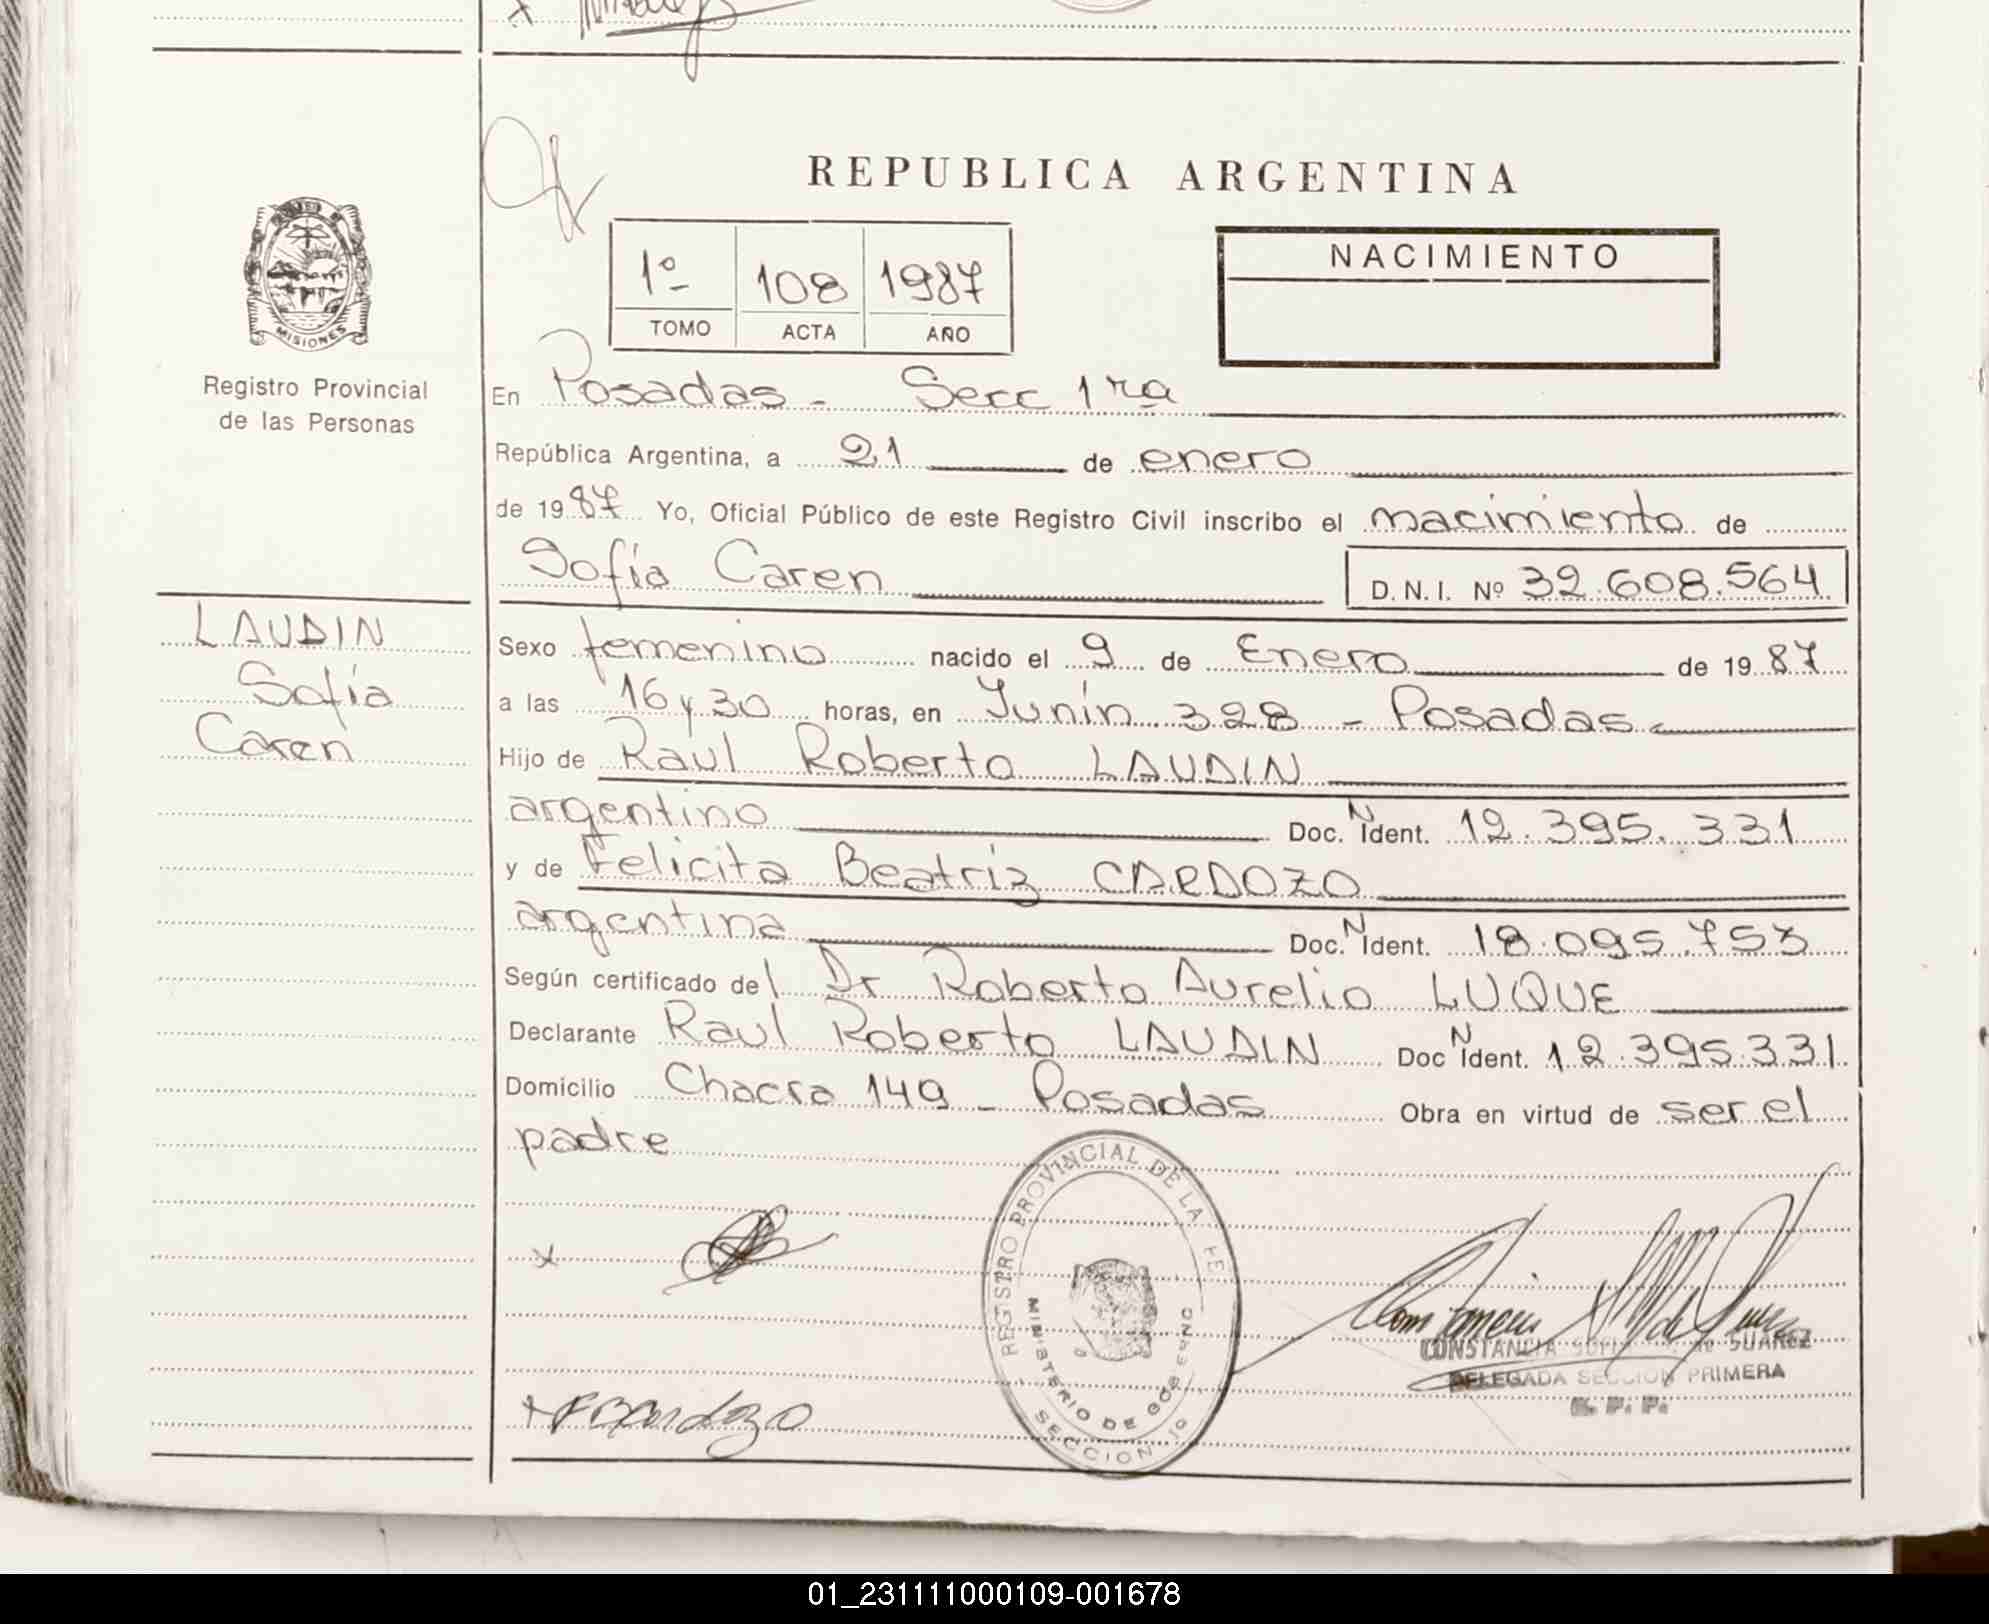 REPUBLICA ARGENTINA
1º 108 1987
TOMO ACTA AÑO
NACIMIENTO
MISIONES
Registro Provincial
de las Personas
En Posadas - Secc 1ra
República Argentina, a 21 de enero
de 1987 Yo, Oficial Público de este Registro Civil inscribo el nacimiento de
Sofía Caren D.N.I. Nº 32.608.564
LAUDIN
Sofía
Caren
Sexo femenino nacido el 9 de Enero de 1987
a las 16 y 30 horas, en Junín 328 - Posadas
Hijo de Raul Roberto LAUDIN
argentino Doc. N Ident. 12.395.331
y de Felicita Beatriz CARDOZO
argentina Doc. N Ident. 18.095.753
Según certificado del Dr Roberto Aurelio LUQUE
Declarante Raul Roberto LAUDIN Doc N Ident. 12.395.331
Domicilio Chacra 149 - Posadas Obra en virtud de ser el
padre
REGISTRO PROVINCIAL DE LA
MINISTERIO DE GOBIERNO
SECCION 1º
CONSTANCIA SUAREZ
DELEGADA SECCION PRIMERA
01_231111000109-001678